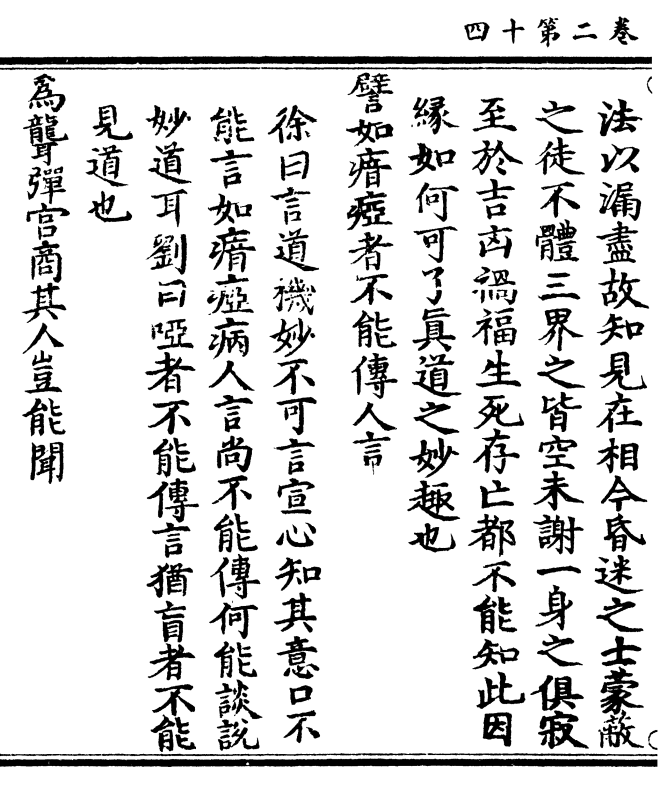 卷二第十四
法以漏盡故知見在相今昏迷之士蒙蔽
之徒不體三界之皆空未謝一身之俱寂
至於吉凶禍福生死存亡都不能知此因
緣如何可了眞道之妙趣也
譬如瘖瘂者不能傳人言
徐曰言道機妙不可言宣心知其意口不
能言如瘖瘂病人言尚不能傳何能談說
妙道耳劉曰啞者不能傳言猶盲者不能
見道也
爲聾彈宮商其人豈能聞